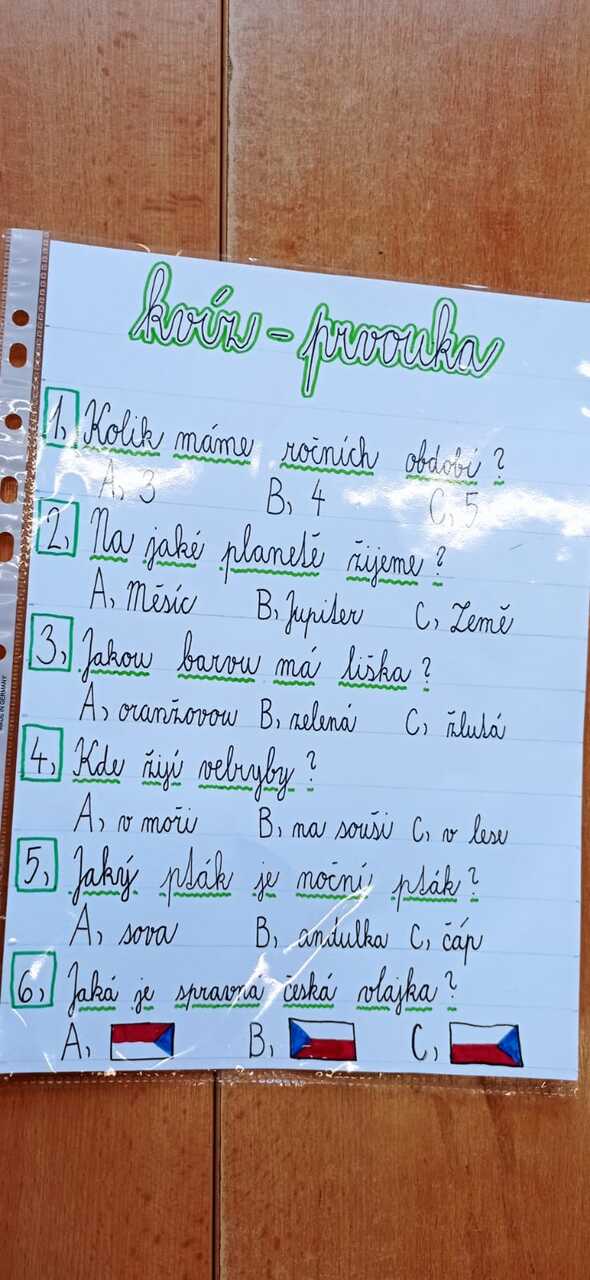 kvíz - prvouka
1, Kolik máme ročních období?
A, 3 B, 4 C, 5
2, Na jaké planetě žijeme?
A, Měsíc B, Jupiter C, Země
3, Jakou barvu má liška?
A, oranžovou B, zelená C, žlutá
4, Kde žijí velryby?
A, v moři B, na souši C, v lese
5, Jaký pták je noční pták?
A, sova B, andulka C, čáp
6, Jaká je spravná česká vlajka?
A, B, C,
MADE IN GERMANY